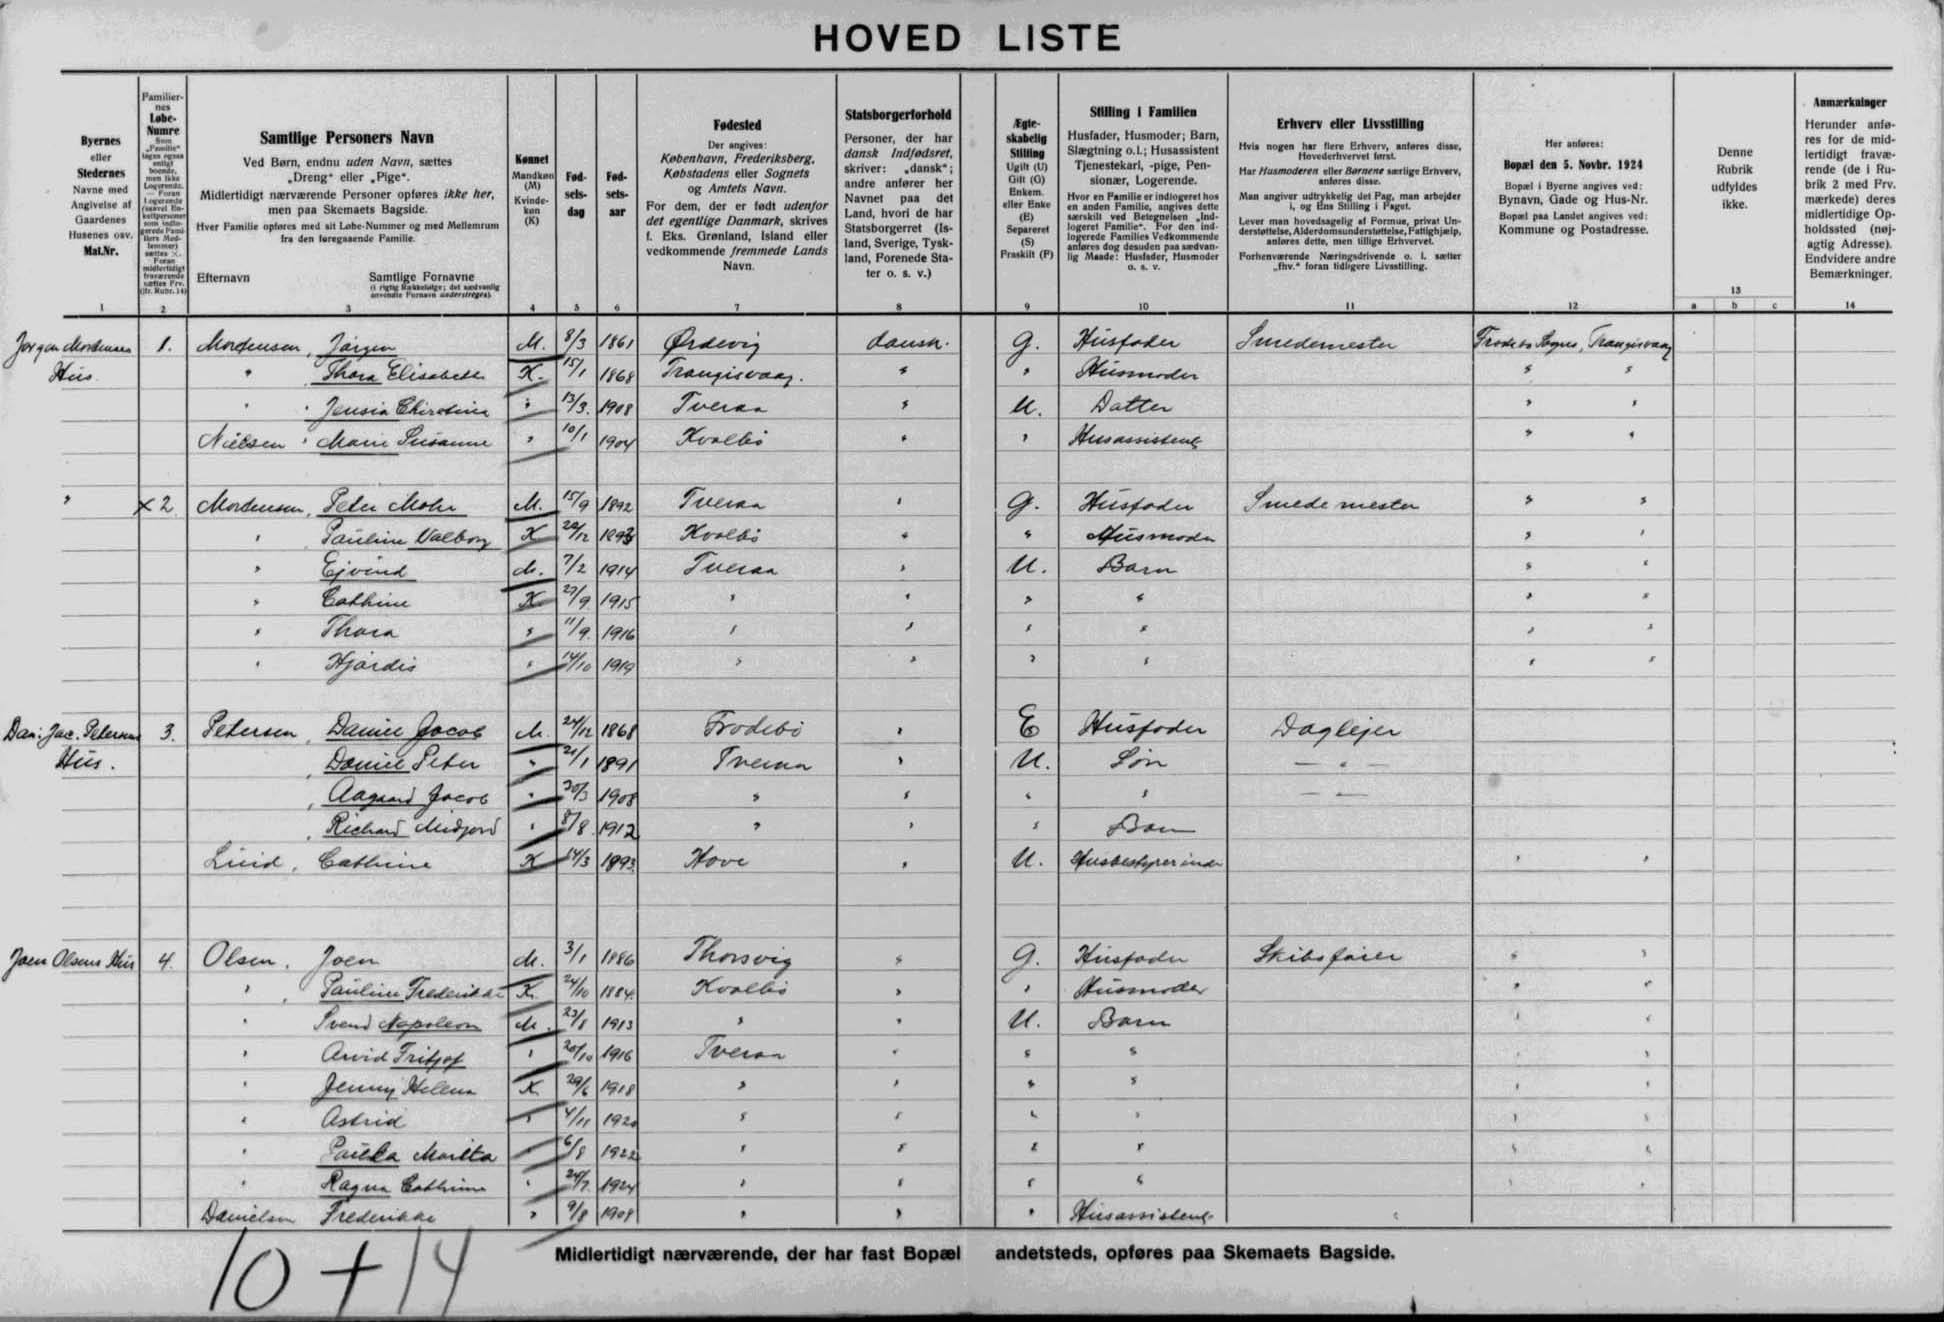 HOVED LISTE
Byernes
eller
Stedernes
Navne med
Angivelse af
Gaardenes
Husenes osv.
Mat.Nr.
1
Familier-
nes
Løbe-
Numre
2
Samtlige Personers Navn
Ved Børn, endnu uden Navn, sættes
„Dreng“ eller „Pige“.
Midlertidigt nærværende Personer opføres ikke her,
men paa Skemaets Bagside.
Hver Familie opføres med sit Løbe-Nummer og med Mellemrum
fra den foregaaende Familie.
Efternavn Samtlige Fornavne
(i rigtig Rækkefølge; det sædvanlig
anvendte Fornavn understreges).
3
Kønnet
Mandkøn
(M)
Kvinde-
køn
(K)
4
Fød-
sels-
dag
5
Fød-
sels-
aar
6
Fødested
Der angives:
København, Frederiksberg,
Købstadens eller Sognets
og Amtets Navn.
For dem, der er født udenfor
det egentlige Danmark, skrives
f. Eks. Grønland, Island eller
vedkommende fremmede Lands
Navn.
7
Statsborgerforhold
Personer, der har
dansk Indfødsret,
skriver: „dansk“;
andre anfører her
Navnet paa det
Land, hvori de har
Statsborgerret (Is-
land, Sverige, Tysk-
land, Forenede Sta-
ter o. s. v.)
8
Ægte-
skabelig
Stilling
Ugift (U)
Gift (G)
Enkem.
eller Enke
(E)
Separeret
(S)
Fraskilt (F)
9
Stilling i Familien
Husfader, Husmoder; Barn,
Slægtning o.l.; Husassistent
Tjenestekarl, -pige, Pen-
sionær, Logerende.
Hvor en Familie er indlogeret hos
en anden Familie, angives dette
særskilt ved Betegnelsen „Ind-
logeret Familie“. For den ind-
logerede Families Vedkommende
anføres dog desuden paa sædvan-
lig Maade: Husfader, Husmoder
o. s. v.
10
Erhverv eller Livsstilling
Hvis nogen har flere Erhverv, anføres disse,
Hovederhvervet først.
Har Husmoderen eller Børnene særlige Erhverv,
anføres disse.
Man angiver udtrykkelig det Fag, man arbejder
i, og Ens Stilling i Faget.
Lever man hovedsagelig af Formue, privat Un-
derstøttelse, Alderdomsunderstøttelse, Fattighjælp,
anføres dette, men tillige Erhvervet.
Forhenværende Næringsdrivende o. l. sætter
„fhv.“ foran tidligere Livsstilling.
11
Her anføres:
Bopæl den 5. Novbr. 1924
Bopæl i Byerne angives ved:
Bynavn, Gade og Hus-Nr.
Bopæl paa Landet angives ved:
Kommune og Postadresse.
12
Denne
Rubrik
udfyldes
ikke.
13
a b c
Anmærkninger
Herunder anfø-
res for de mid-
lertidigt fravæ-
rende (de i Ru-
brik 2 med Frv.
mærkede) deres
midlertidige Op-
holdssted (nøj-
agtig Adresse).
Endvidere andre
Bemærkninger.
14
Jørgen Mortensens 1. Mortensen, Jørgen M. 8/3 1861 Ørdevig dansk. G. Husfader Smedemester Frodebø Sogns, Trangisvaag
Hus. " Thora Elisabeth K. 15/1 1868 Trangisvaag. " " Husmoder " "
" Jensia Christine " 13/3 1908 Tveraa " U. Datter " "
Nielsen Marie Susanne " 10/1 1904 Kvalbø " " Husassistent " "
" × 2. Mortensen, Peter Mohr M. 15/9 1892 Tveraa " G. Husfader Smedemester " "
" Pauline Valborg K 22/12 1893 Kvalbø " " Husmoder " "
" Ejvind M. 7/2 1914 Tveraa " U. Barn " "
" Cathrine K 27/9 1915 " " " " " "
" Thora " 11/9 1916 " " " " " "
" Hjørdis " 14/10 1919 " " " " " "
Dan: Jac. Petersens 3. Petersen, Daniel Jacob M. 24/12 1868 Frodebø " E Husfader Daglejer
Hus. Daniel Peter " 21/1 1891 Tveraa " U. Søn — " —
Aagaard Jacob " 20/3 1908 " " " " — " —
Richard Midjord " 8/8 1912 " " " Barn
Lüid, Cathrine K 14/3 1893 Hove " U. Husbestyrerinde " "
Joen Olsens Hus 4. Olsen, Joen M. 3/1 1886 Thorsvig " G. Husfader Skibsfører " "
" Pauline Frederikke K. 24/10 1884 Kvalbø " " Husmoder " "
" Svend Napoleon M. 23/8 1913 " " U. Barn " "
" Arvid Fritjof " 20/10 1916 Tveraa " " " " "
" Jenny Helena K 29/6 1918 " " " " " "
" Astrid " 4/11 1920 " " " " " "
" Paula Marita 6/8 1922 " " " " " "
" Ragna Cathrine " 24/7 1924 " " " " " "
Danielsen Frederikke " 9/8 1908 " " " Husassistent
Midlertidigt nærværende, der har fast Bopæl andetsteds, opføres paa Skemaets Bagside.
10 + 14